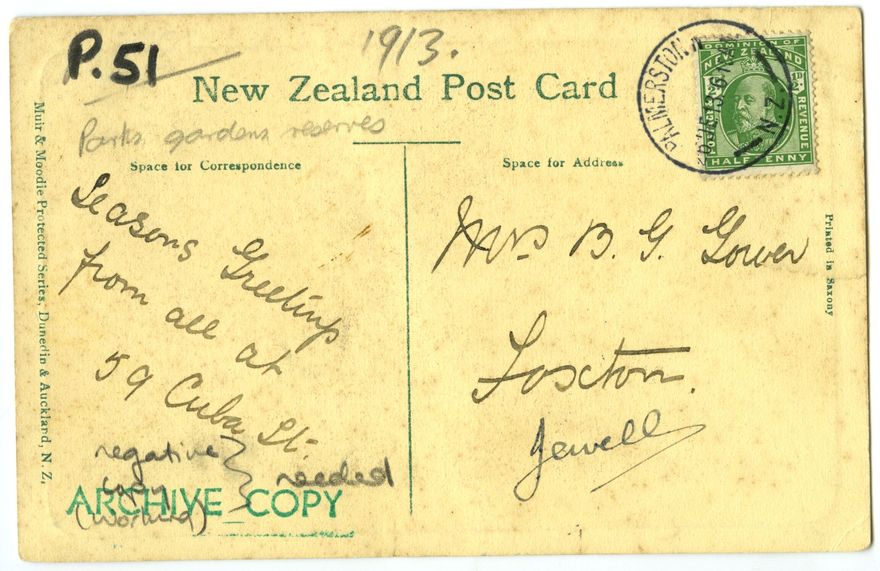 P.51
1913.
New Zealand Post Card
Parks, gardens, reserves
Space for Correspondence
Space for Address
Seasons Greetings
from all at
59 Cuba St.
negative
copy
(working)
needed
ARCHIVE COPY
Mrs B. G. Gower
Foxton.
Jewell
Muir & Moodie Protected Series, Dunedin & Auckland, N. Z.
Printed in Saxony
PALMERSTON N
N.Z
DOMINION OF
NEW ZEALAND
POSTAGE &
REVENUE
HALF PENNY